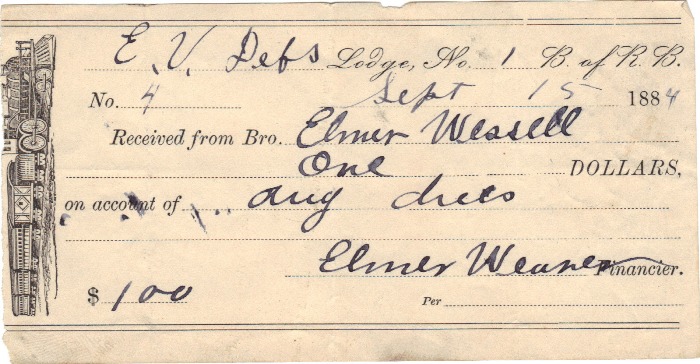 E. V. Debs Lodge, No. 1 B. of R. B.
No. 4 Sept 15 1884
Received from Bro. Elmer Wessell
One DOLLARS,
on account of Aug dues
Elmer Weaver Financier.
$ 100 Per